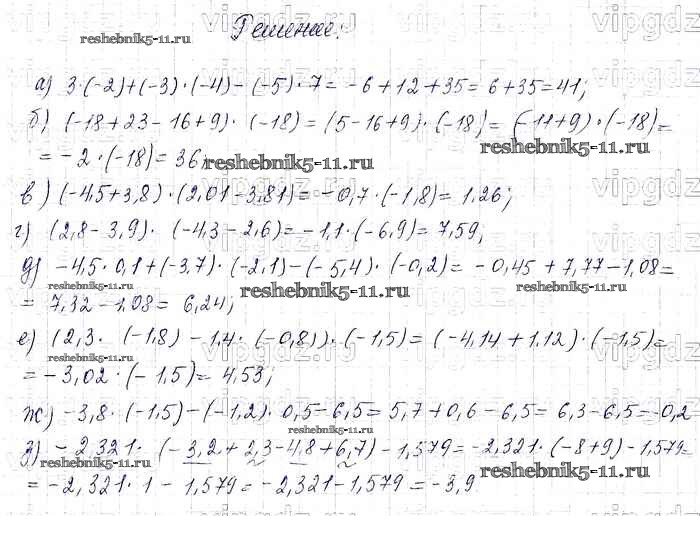 Решение:
а) 3·(-2)+(-3)·(-4)-(-5)·7=-6+12+35=6+35=41;
б) (-18+23-16+9)·(-18)=(5-16+9)·(-18)=(-11+9)·(-18)=
=-2·(-18)=36
в) (-4,5+3,8)·(2,01-3,81)=-0,7·(-1,8)=1,26;
г) (2,8-3,9)·(-4,3-2,6)=-1,1·(-6,9)=7,59;
д) -4,5·0,1+(-3,7)·(-2,1)-(-5,4)·(-0,2)=-0,45+7,77-1,08=
=7,32-1,08=6,24;
е) (2,3·(-1,8)-1,4·(-0,8))·(-1,5)=(-4,14+1,12)·(-1,5)=
=-3,02·(-1,5)=4,53;
ж) -3,8·(-1,5)-(-1,2)·0,5-6,5=5,7+0,6-6,5=6,3-6,5=-0,2
з) -2,321·(-3,2+2,3-4,8+6,7)-1,579=-2,321·(-8+9)-1,579=
=-2,321·1-1,579=-2,321-1,579=-3,9
reshebnik5-11.ru
reshebnik5-11.ru
reshebnik5-11.ru
reshebnik5-11.ru
reshebnik5-11.ru
reshebnik5-11.ru
reshebnik5-11.ru
reshebnik5-11.ru
reshebnik5-11.ru
vipgdz
vipgdz
vipgdz